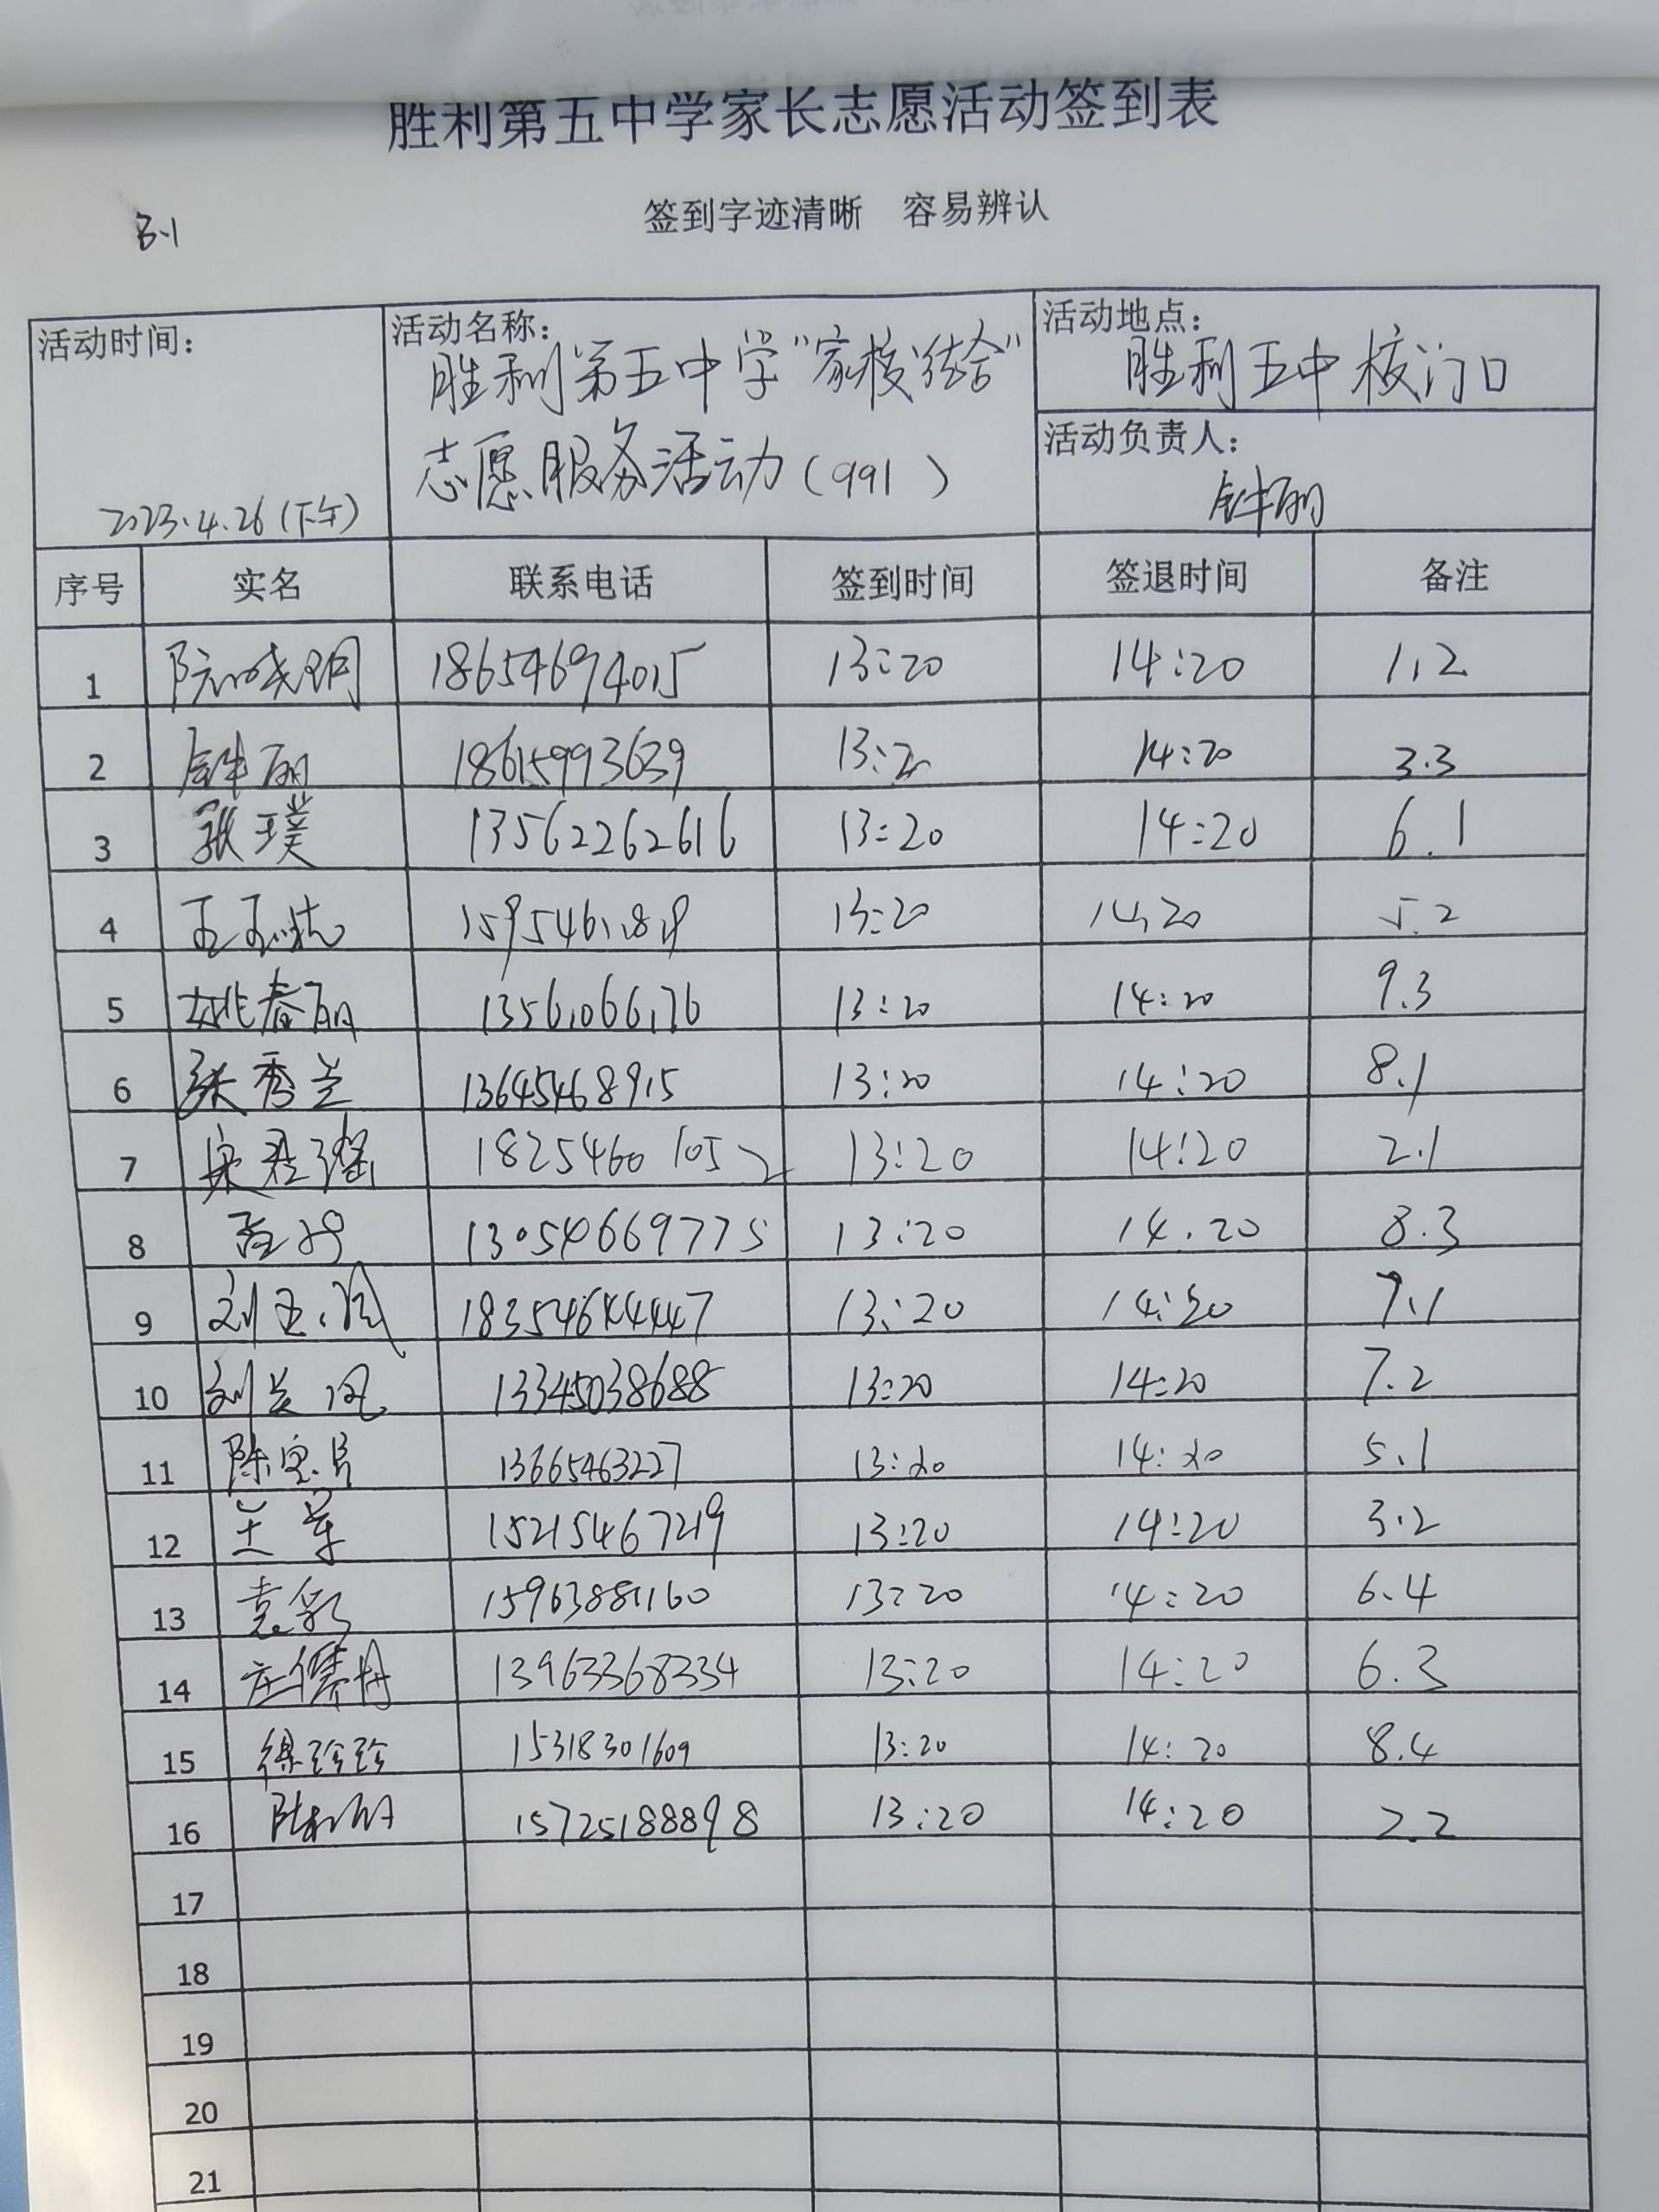 胜利第五中学家长志愿活动签到表
签到字迹清晰 容易辨认
3.1
活动时间: 2023.4.26(下午)
活动名称: 胜利第五中学"家校结合"
志愿服务活动(991)
活动地点: 胜利五中校门口
活动负责人: 钟丽
序号 实名 联系电话 签到时间 签退时间 备注
1 18654694015 13:20 14:20 1.2
2 钟丽 18615993639 13:20 14:20 3.3
3 张璞 13562262616 13:20 14:20 6.1
4 13:20 14:20 5.2
5 姚春丽 13561066176 13:20 14:20 9.3
6 张秀兰 13645468915 13:20 14:20 8.1
7 18254601052 13:20 14:20 2.1
8 13054669775 13:20 14.20 8.3
9 刘玉凤 18354644447 13:20 14:20 7.1
10 刘兰凤 13345038688 13:20 14:20 7.2
11 13665463227 13:20 14:20 5.1
12 15215467219 13:20 14:20 3.2
13 袁彩 15963881160 13:20 14:20 6.4
14 13963368334 13:20 14:20 6.3
15 徐珍珍 15318301609 13:20 14:20 8.4
16 15725188898 13:20 14:20 2.2
17
18
19
20
21